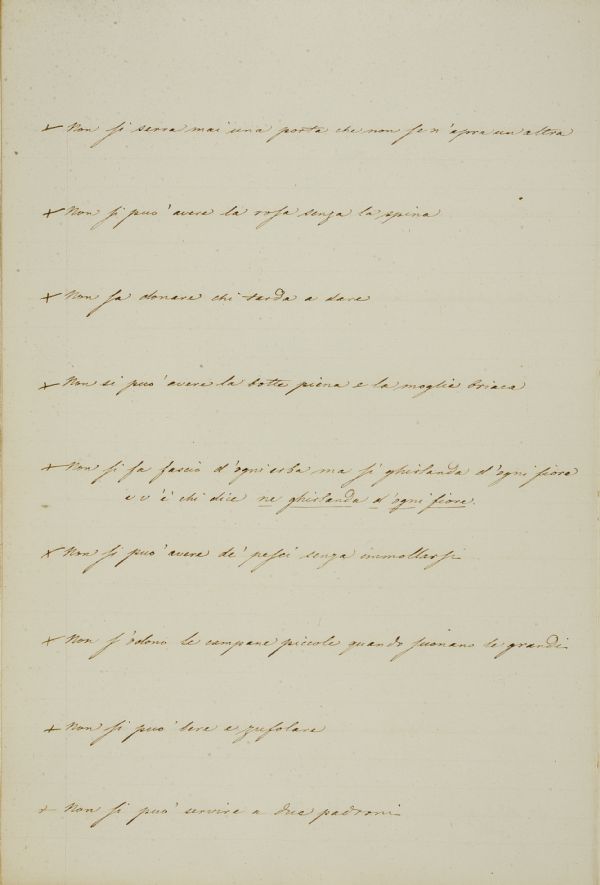 + Non si serra mai una porta che non se n'apra un'altra
+ Non si puo' avere la rosa senza la spina
+ Non sa donare chi tarda a dare
+ Non si puo' avere la botte piena e la moglie briaca
+ Non si fa fascio d'ogni erba ma sì ghirlanda d'ogni fiore
e v'è chi dice ne ghirlanda d'ogni fiore.
+ Non si puo' avere de' pesci senza immollarsi
+ Non s'odono le campane piccole quando suonano le grandi
+ Non si puo' bere e zufolare
+ Non si puo' servire a due padroni